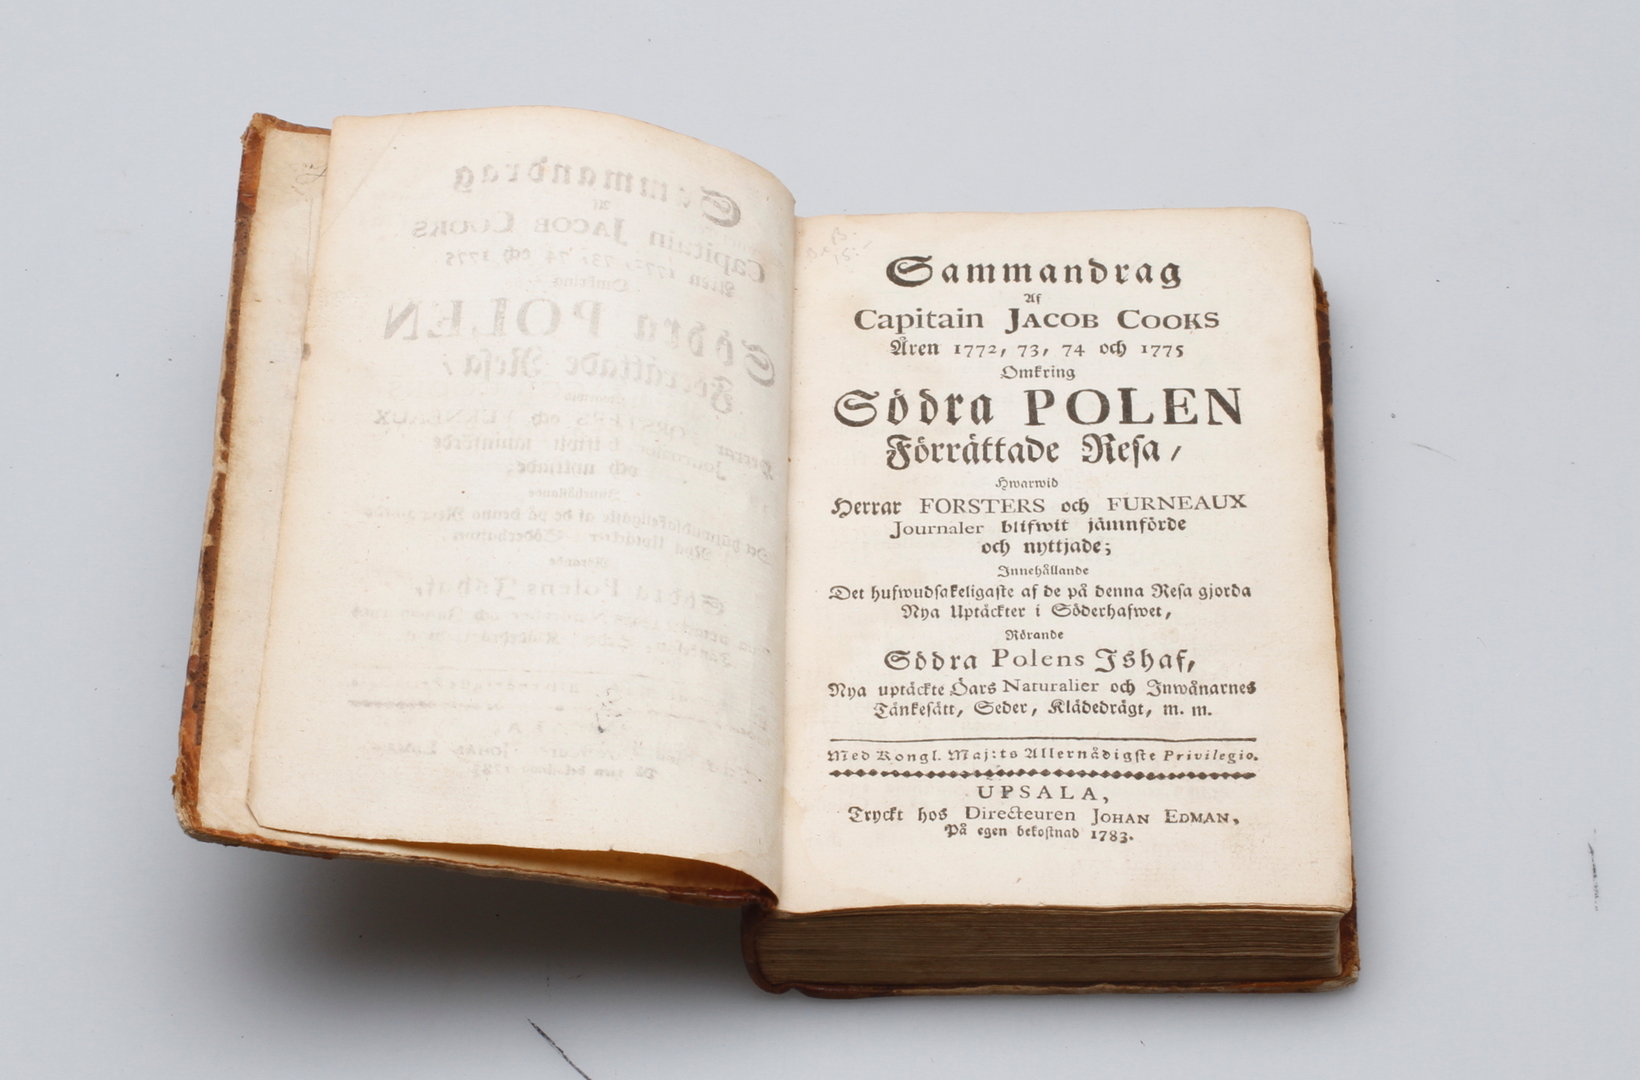 Sammandrag
Af
Capitain JACOB COOKS
Åren 1772, 73, 74 och 1775
Omkring
Södra POLEN
Förrättade Resa,
Hwarwid
Herrar FORSTERS och FURNEAUX
Journaler blifwit jämnförde
och nyttjade;
Innehållande
Det hufwudsakeligaste af de på denna Resa gjorda
Nya Uptäckter i Söderhafwet,
Rörande
Södra Polens Ishaf,
Nya uptäckte Öars Naturalier och Inwånarnes
Tänkesätt, Seder, Klädedrägt, m. m.
Med Kongl. Maj:ts Allernådigste Privilegio.
UPSALA,
Tryckt hos Directeuren JOHAN EDMAN,
På egen bekostnad 1783.